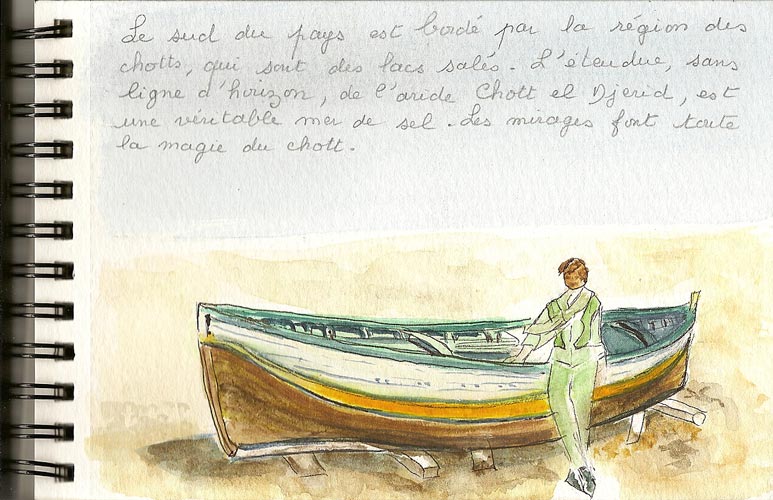 Le sud du pays est bordé par la région des
chotts, qui sont des lacs salés. L'étendue, sans
ligne d'horizon, de l'aride Chott el Djerid, est
une véritable mer de sel. Les mirages font toute
la magie du chott.